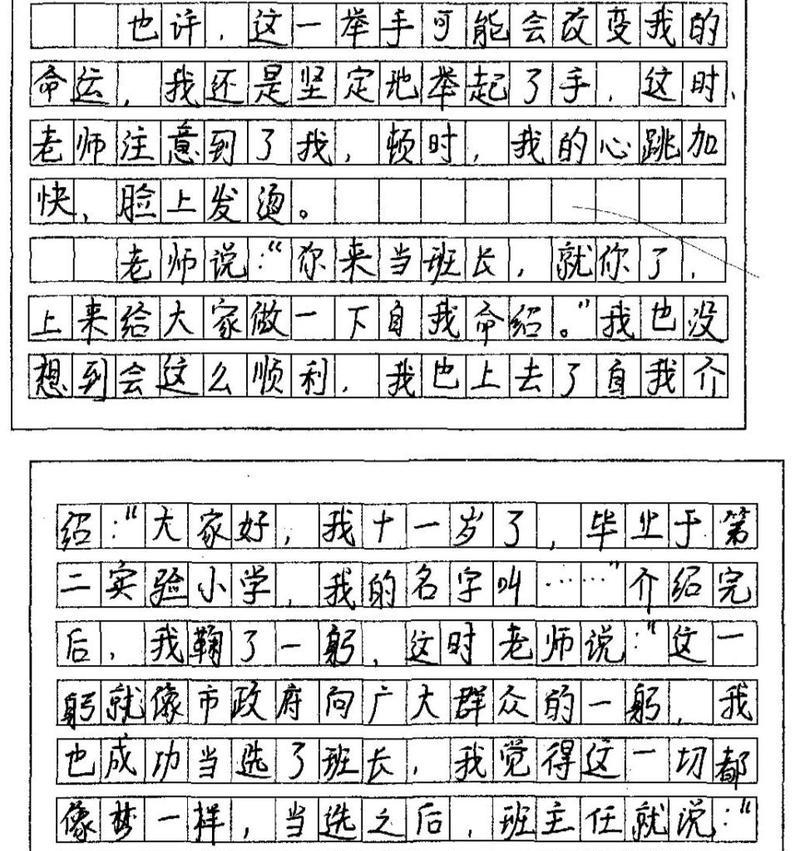 也许，这一举手可能会改变我的
命运，我还是坚定地举起了手，这时，
老师注意到了我，顿时，我的心跳加
快，脸上发烫。
老师说：“你来当班长，就你了，
上来给大家做一下自我命绍。”我也没
想到会这么顺利，我也上去了自我介
绍：“大家好，我十一岁了，毕业于第
二实验小学，我的名字叫……”介绍完
后，我鞠了一躬，这时老师说：“这一
躬就像市政府向广大群众的一躬，我
也成功当选了班长，我觉得这一切都
像梦一样，当选之后，班主任就说：“